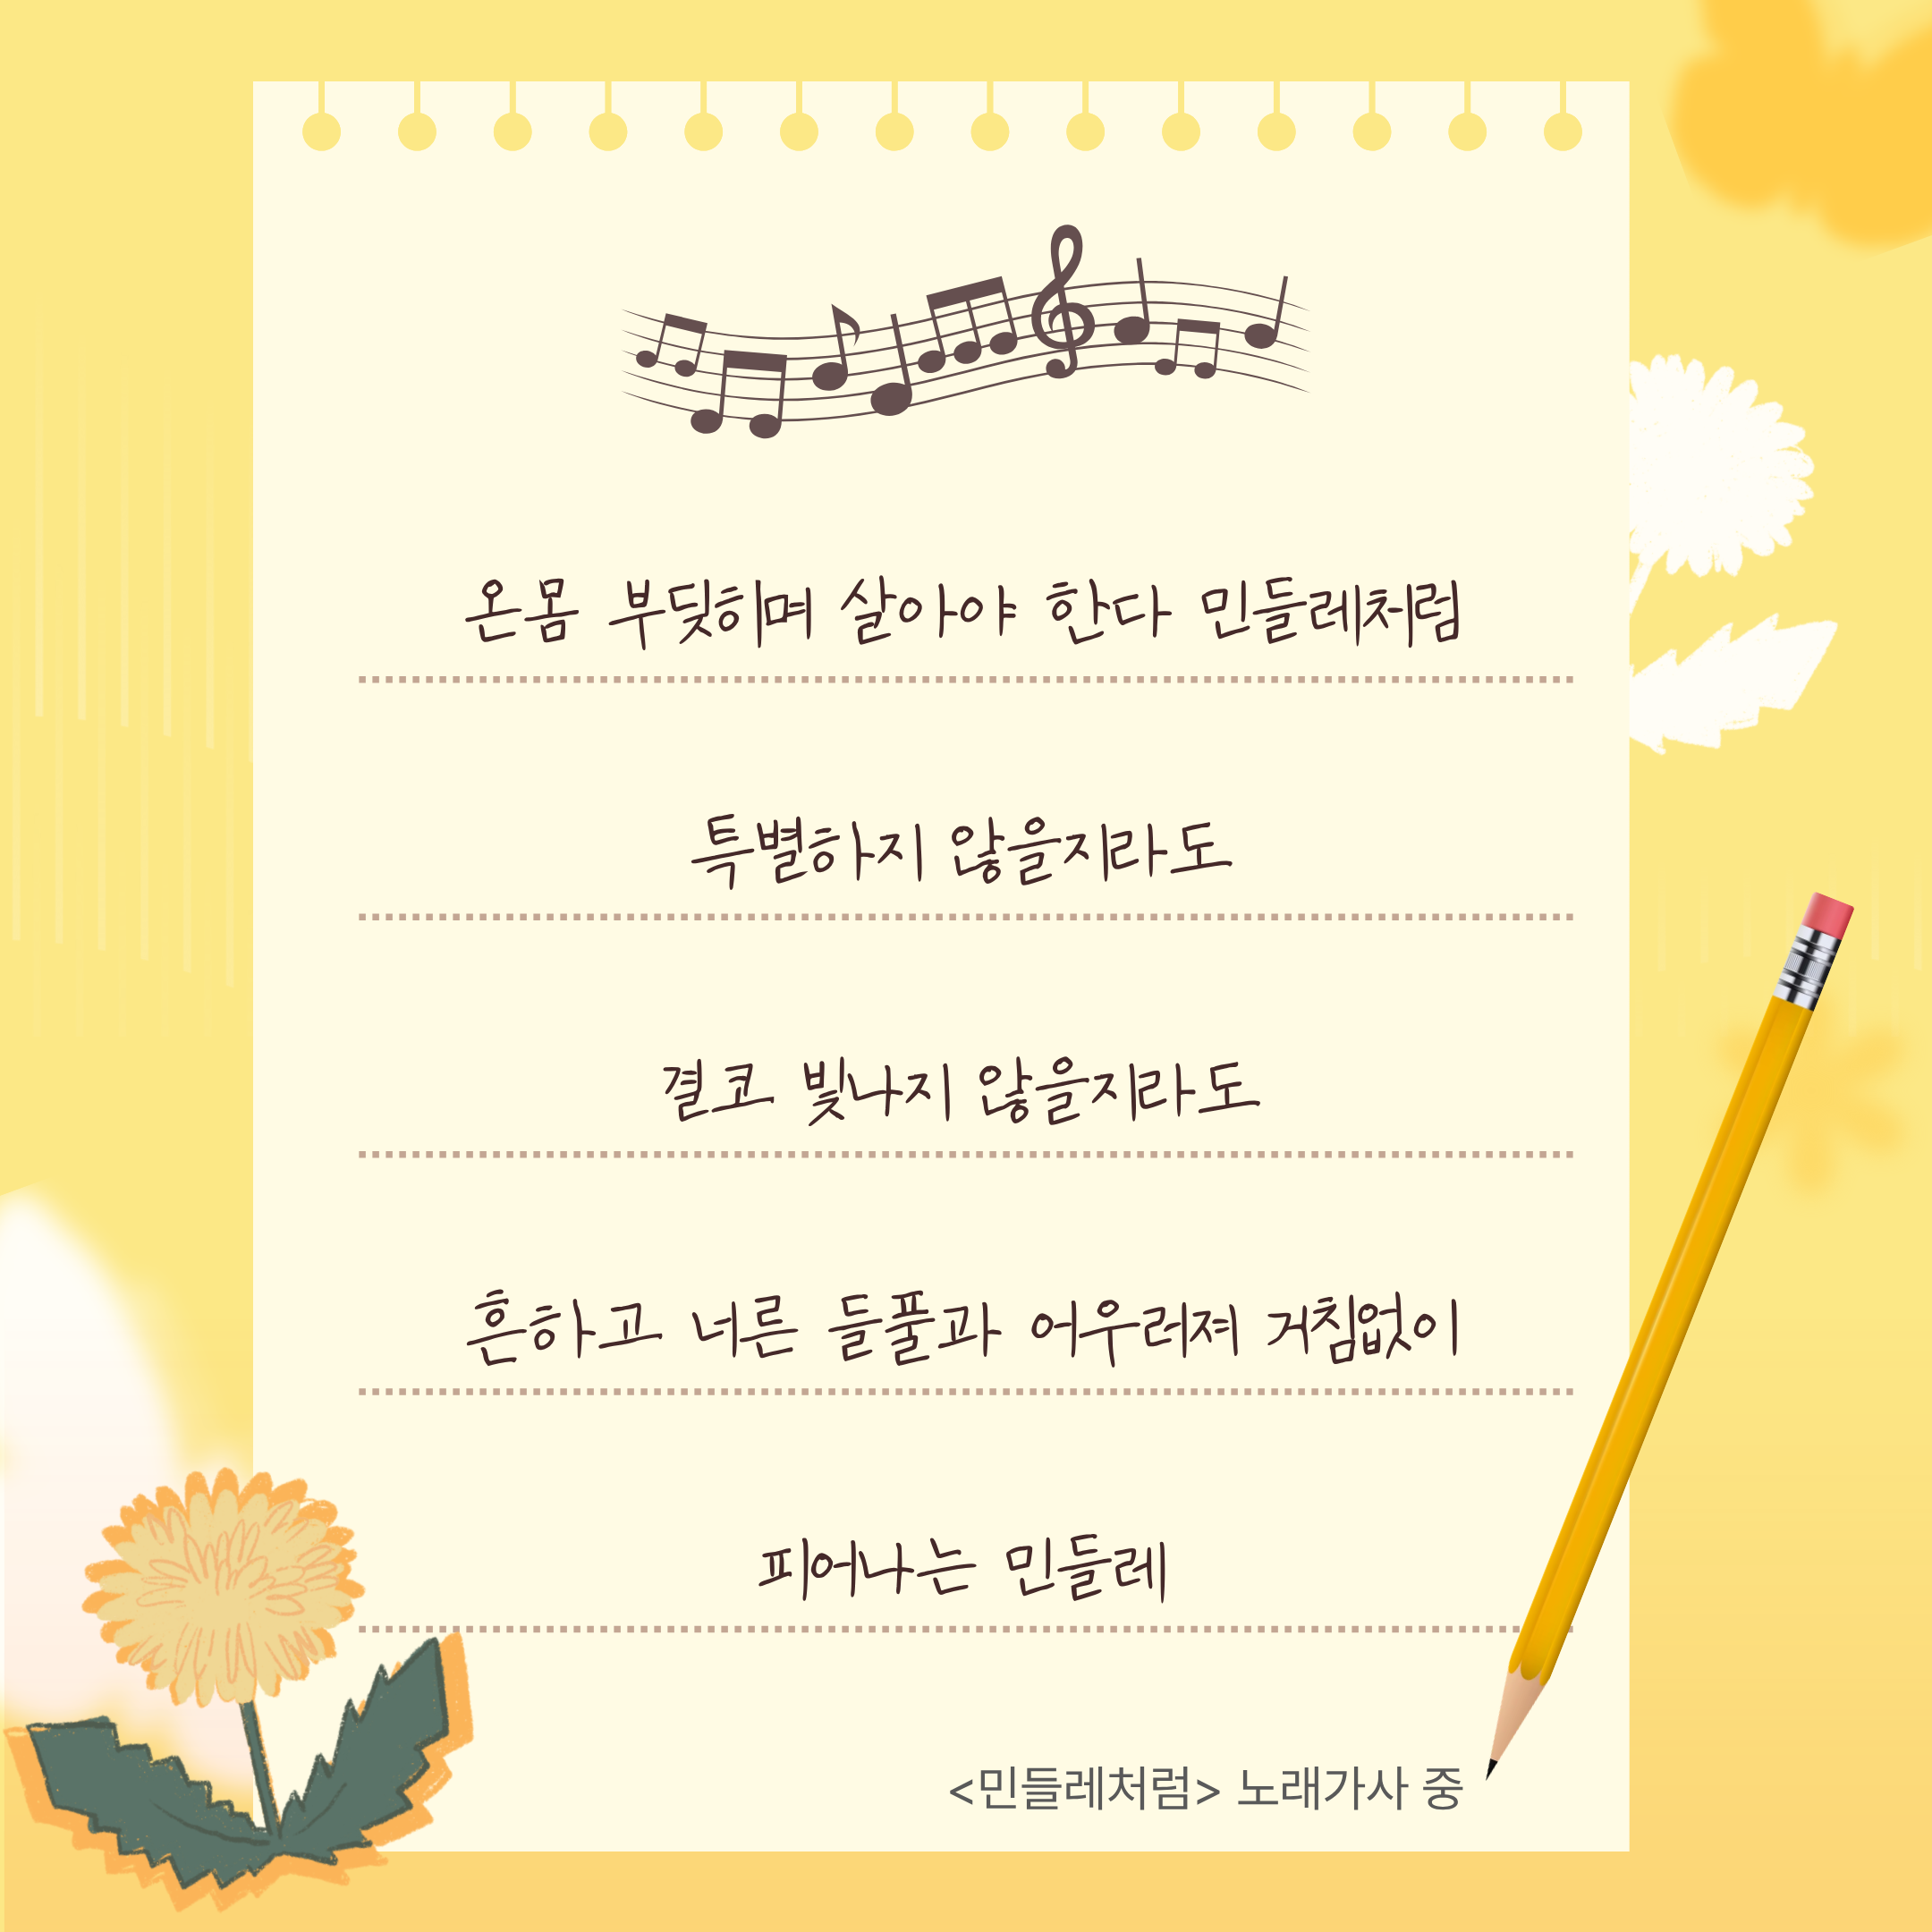 온몸 부딪히며 살아야 한다 민들레처럼
특별하지 않을지라도
결코 빛나지 않을지라도
흔하고 너른 들풀과 어우러져 거침없이
피어나는 민들레
<민들레처럼> 노래가사 중